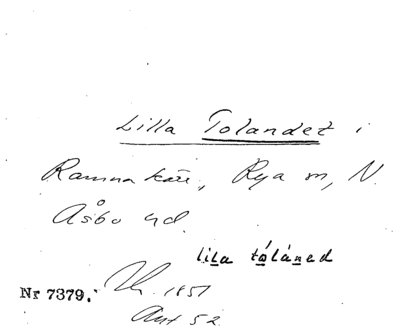 Lilla Tolandet i
Ramnakärr, Rya sn, N.
Åsbo hd.
lila tólánad
Nr 7379. 1951
Ant 52